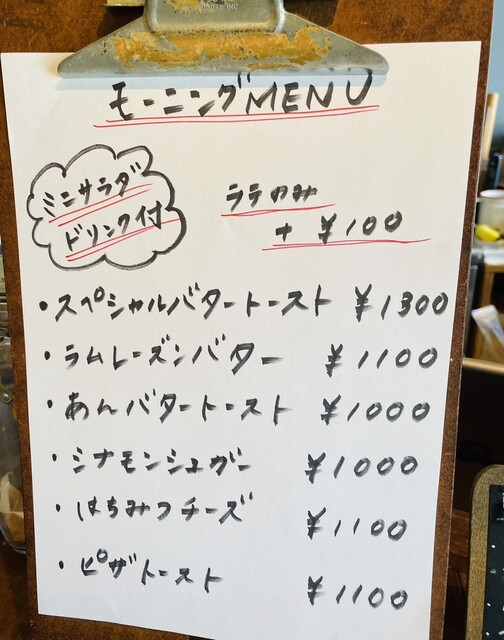 モーニングMENU
ミニサラダ
ドリンク付
ラテのみ
+ ¥100
・スペシャルバタートースト ¥1300
・ラムレーズンバター ¥1100
・あんバタートースト ¥1000
・シナモンシュガー ¥1000
・はちみつチーズ ¥1100
・ピザトースト ¥1100